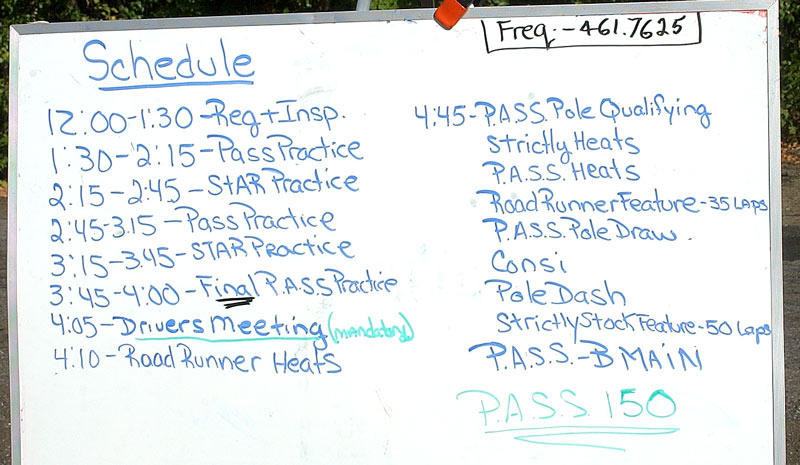 Freq. - 461.7625
Schedule
12:00-1:30-Reg+Insp.
1:30-2:15-Pass Practice
2:15-2:45-STAR Practice
2:45-3:15-Pass Practice
3:15-3:45-STAR Practice
3:45-4:00-Final P.A.S.S Practice
4:05-Drivers Meeting (mandatory)
4:10-Road Runner Heats
4:45-P.A.S.S. Pole Qualifying
Strictly Heats
P.A.S.S. Heats
Road Runner Feature-35 Laps
P.A.S.S. Pole Draw.
Consi
Pole Dash
Strictly Stock Feature-50 Laps
P.A.S.S.-B MAIN
P.A.S.S. 150